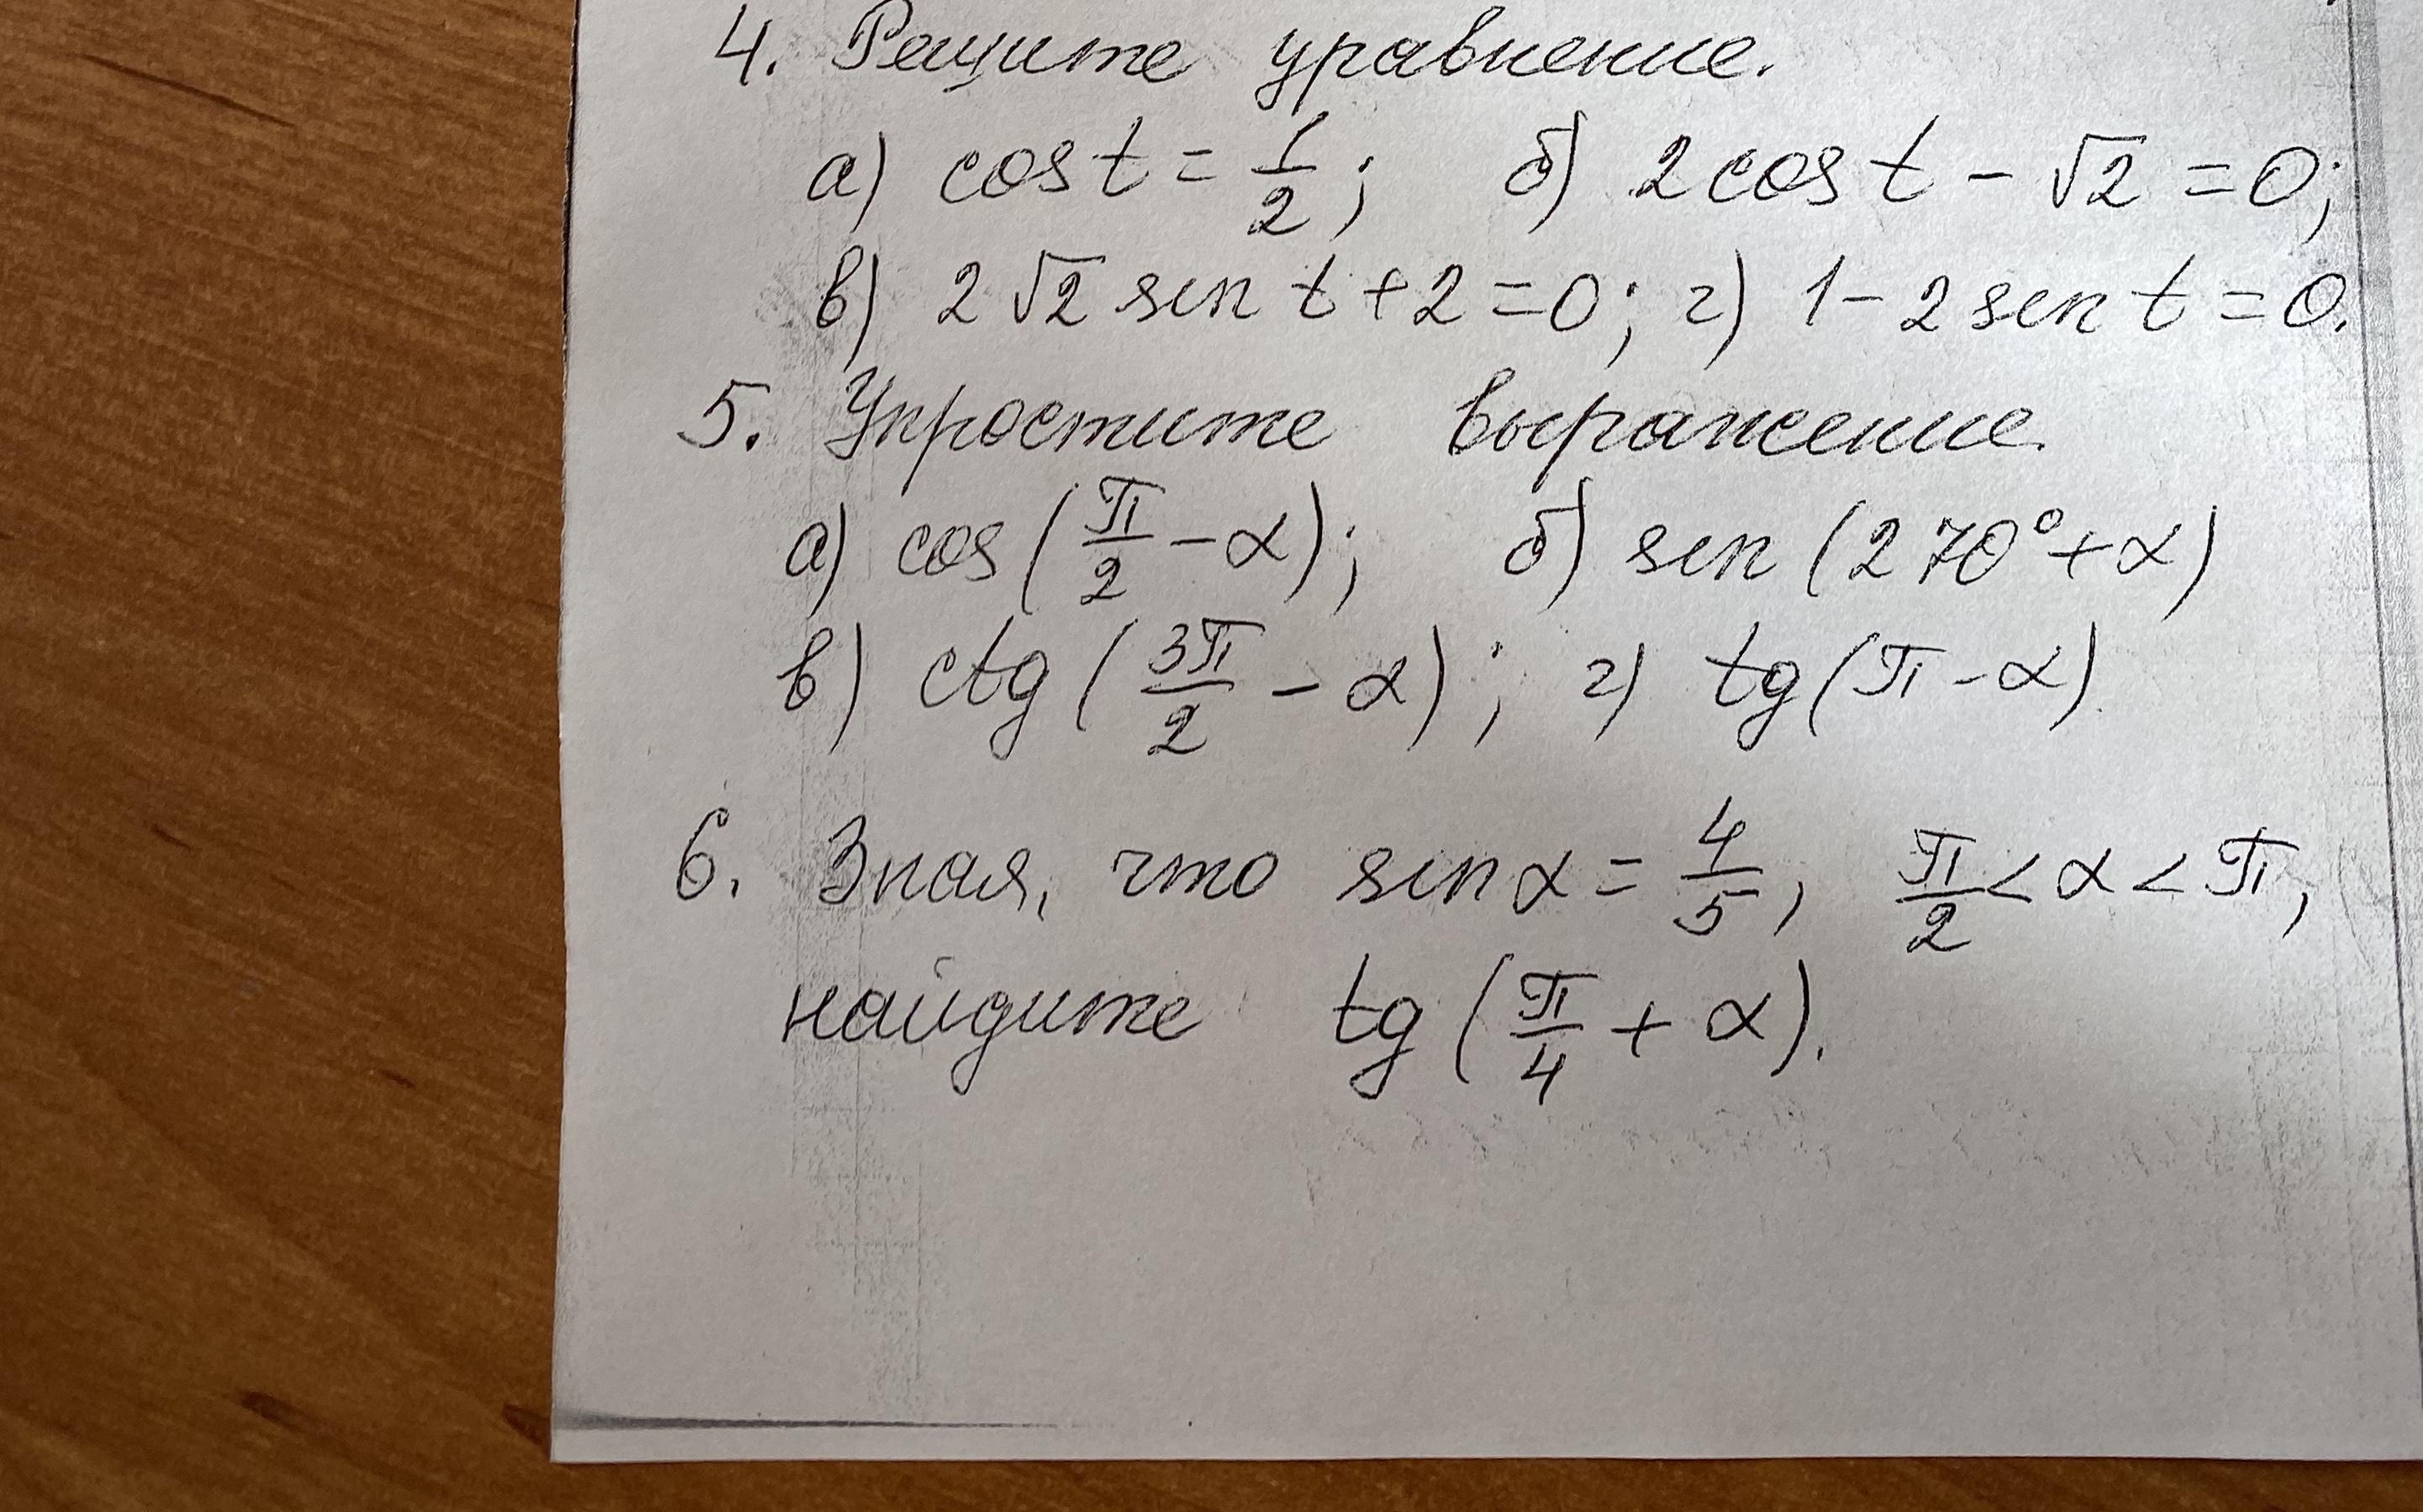 4. Решите уравнение.
а) cos t = 1/2; б) 2 cos t - √2 = 0;
в) 2√2 sin t + 2 = 0; г) 1 - 2 sin t = 0.
5. Упростите выражение.
а) cos (π/2 - α); б) sin (270° + α)
в) ctg (3π/2 - α); г) tg (π - α).
6. Зная, что sin α = 4/5, π/2 < α < π,
найдите tg (π/4 + α).